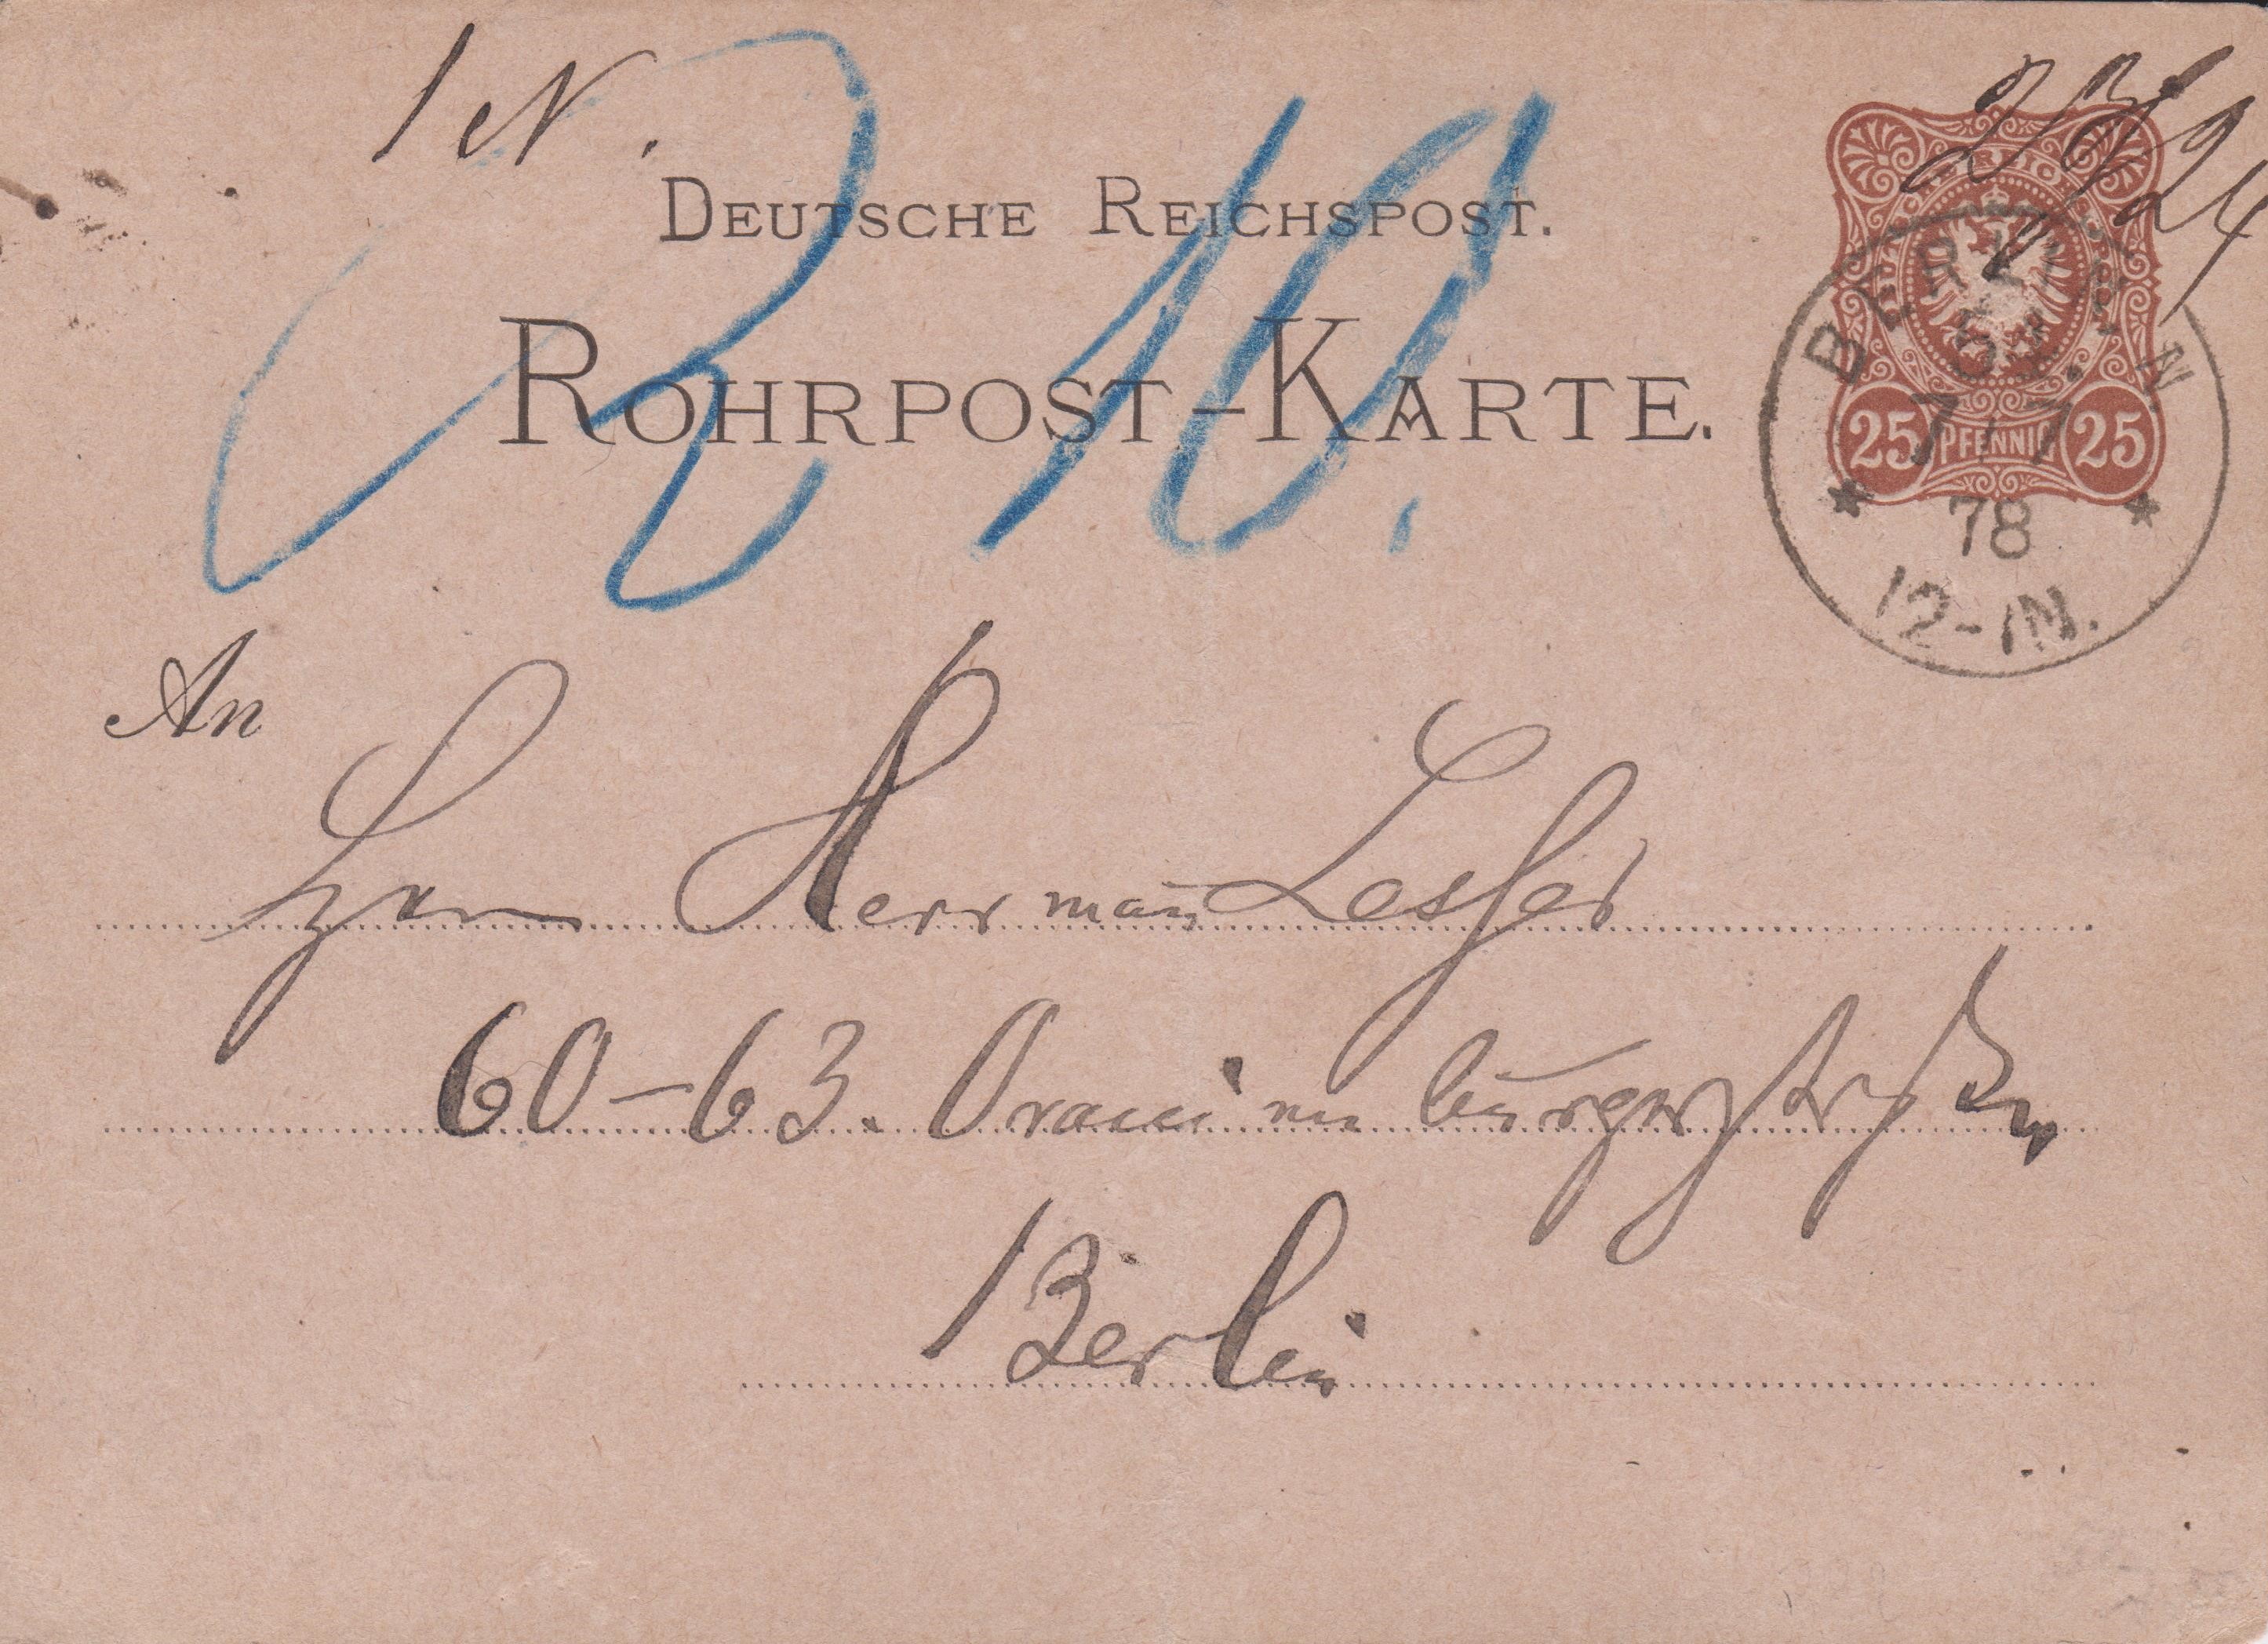 1 N.
DEUTSCHE REICHSPOST.
ROHRPOST-KARTE.
2 10.
REICH
25 PFENNIG 25
BERLIN N
7 7
78
12-1N.
An
Herrn Herrman Lesser
60-63. Oranienburgerstrße
Berlin